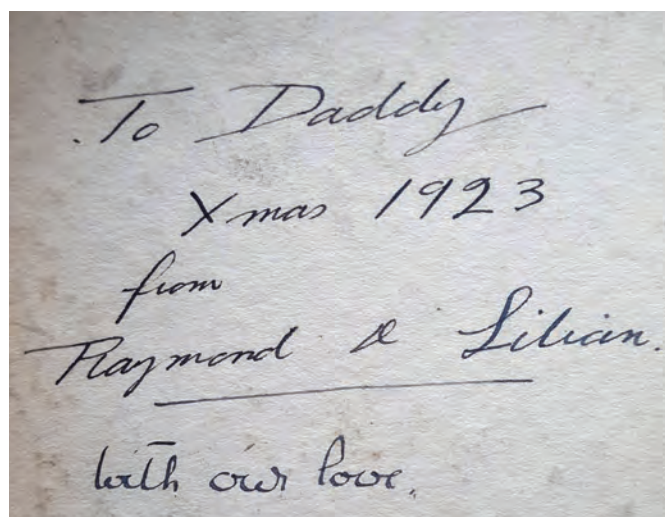 To Daddy
Xmas 1923
from
Raymond & Lilian.
with our love.